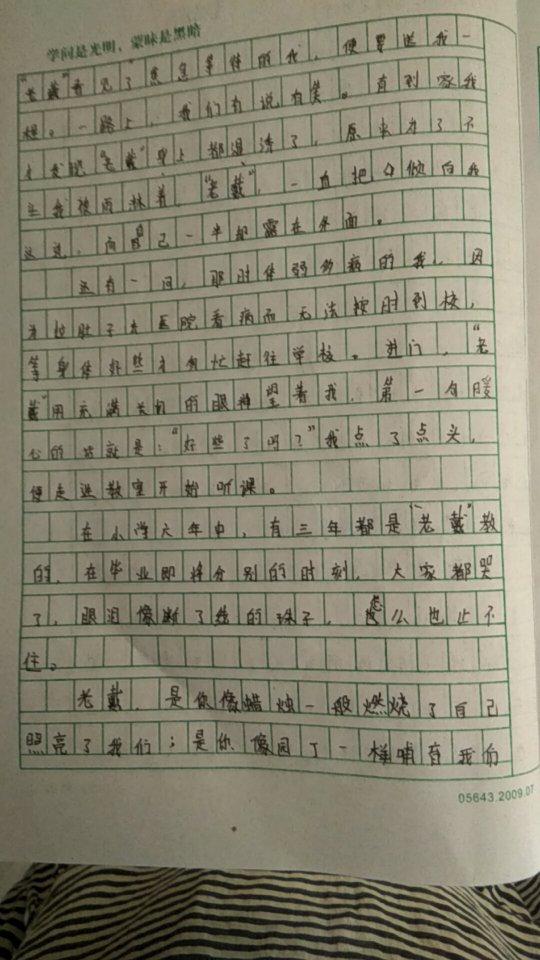 学问是光明，蒙昧是黑暗
"老戴"看见了焦急等待的我，便要送我一
程。一路上，我们有说有笑。直到家我
才发现"老戴"身上都湿透了，原来为了不
让我被雨淋着，"老戴"，一直把伞倾向我
这边，而自己一半却露在外面。
还有一回，那时体弱多病的我，因
为拉肚子去医院看病而无法按时到校，
等身体好些才匆忙赶往学校。进门，"老
戴"用充满关切的眼神望着我，第一句暖
心的话就是："好些了吗？"我点了点头，
便走进教室开始听课。
在小学六年中，有三年都是"老戴"教
的，在毕业即将分别的时刻，大家都哭
了，眼泪像断了线的珠子，怎么也止不
住。
老戴，是你像蜡烛一般燃烧了自己
照亮了我们；是你像园丁一样哺育我们
05643.2009.07